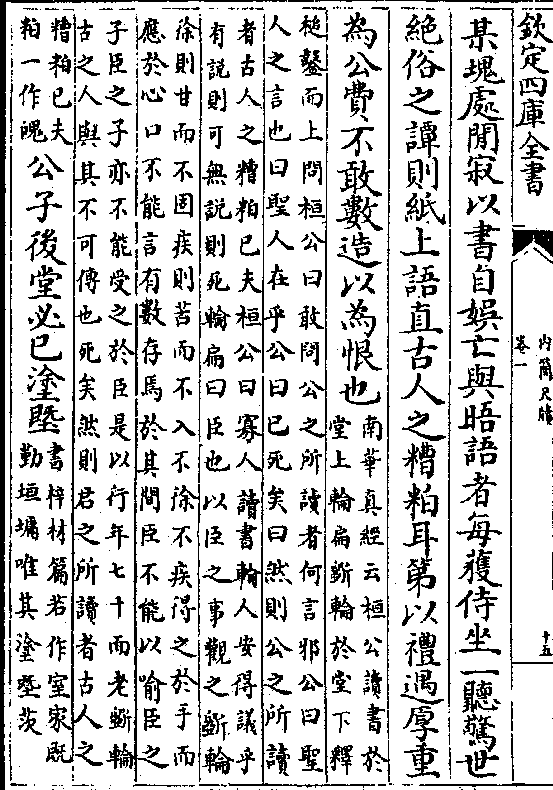 欽定四庫全書
內簡尺牘
卷一
十五
某塊處閒寂以書自娛亡與晤語者每獲侍坐一聽驚世
絕俗之譚則紙上語直古人之糟粕耳第以禮遇厚重
為公費不敢數造以為恨也
南華真經云桓公讀書於
堂上輪扁斲輪於堂下釋
椎鑿而上問桓公曰敢問公之所讀者何言邪公曰聖
人之言也曰聖人在乎公曰已死矣曰然則公之所讀
者古人之糟粕已夫桓公曰寡人讀書輪人安得議乎
有說則可無說則死輪扁曰臣也以臣之事觀之斲輪
徐則甘而不固疾則苦而不入不徐不疾得之於手而
應於心口不能言有數存焉於其間臣不能以喻臣之
子臣之子亦不能受之於臣是以行年七十而老斲輪
古之人與其不可傳也死矣然則君之所讀者古人之
糟粕已夫
粕一作魄
公子後堂必已塗塈
書梓材篇若作室家既
勤垣墉唯其塗塈茨